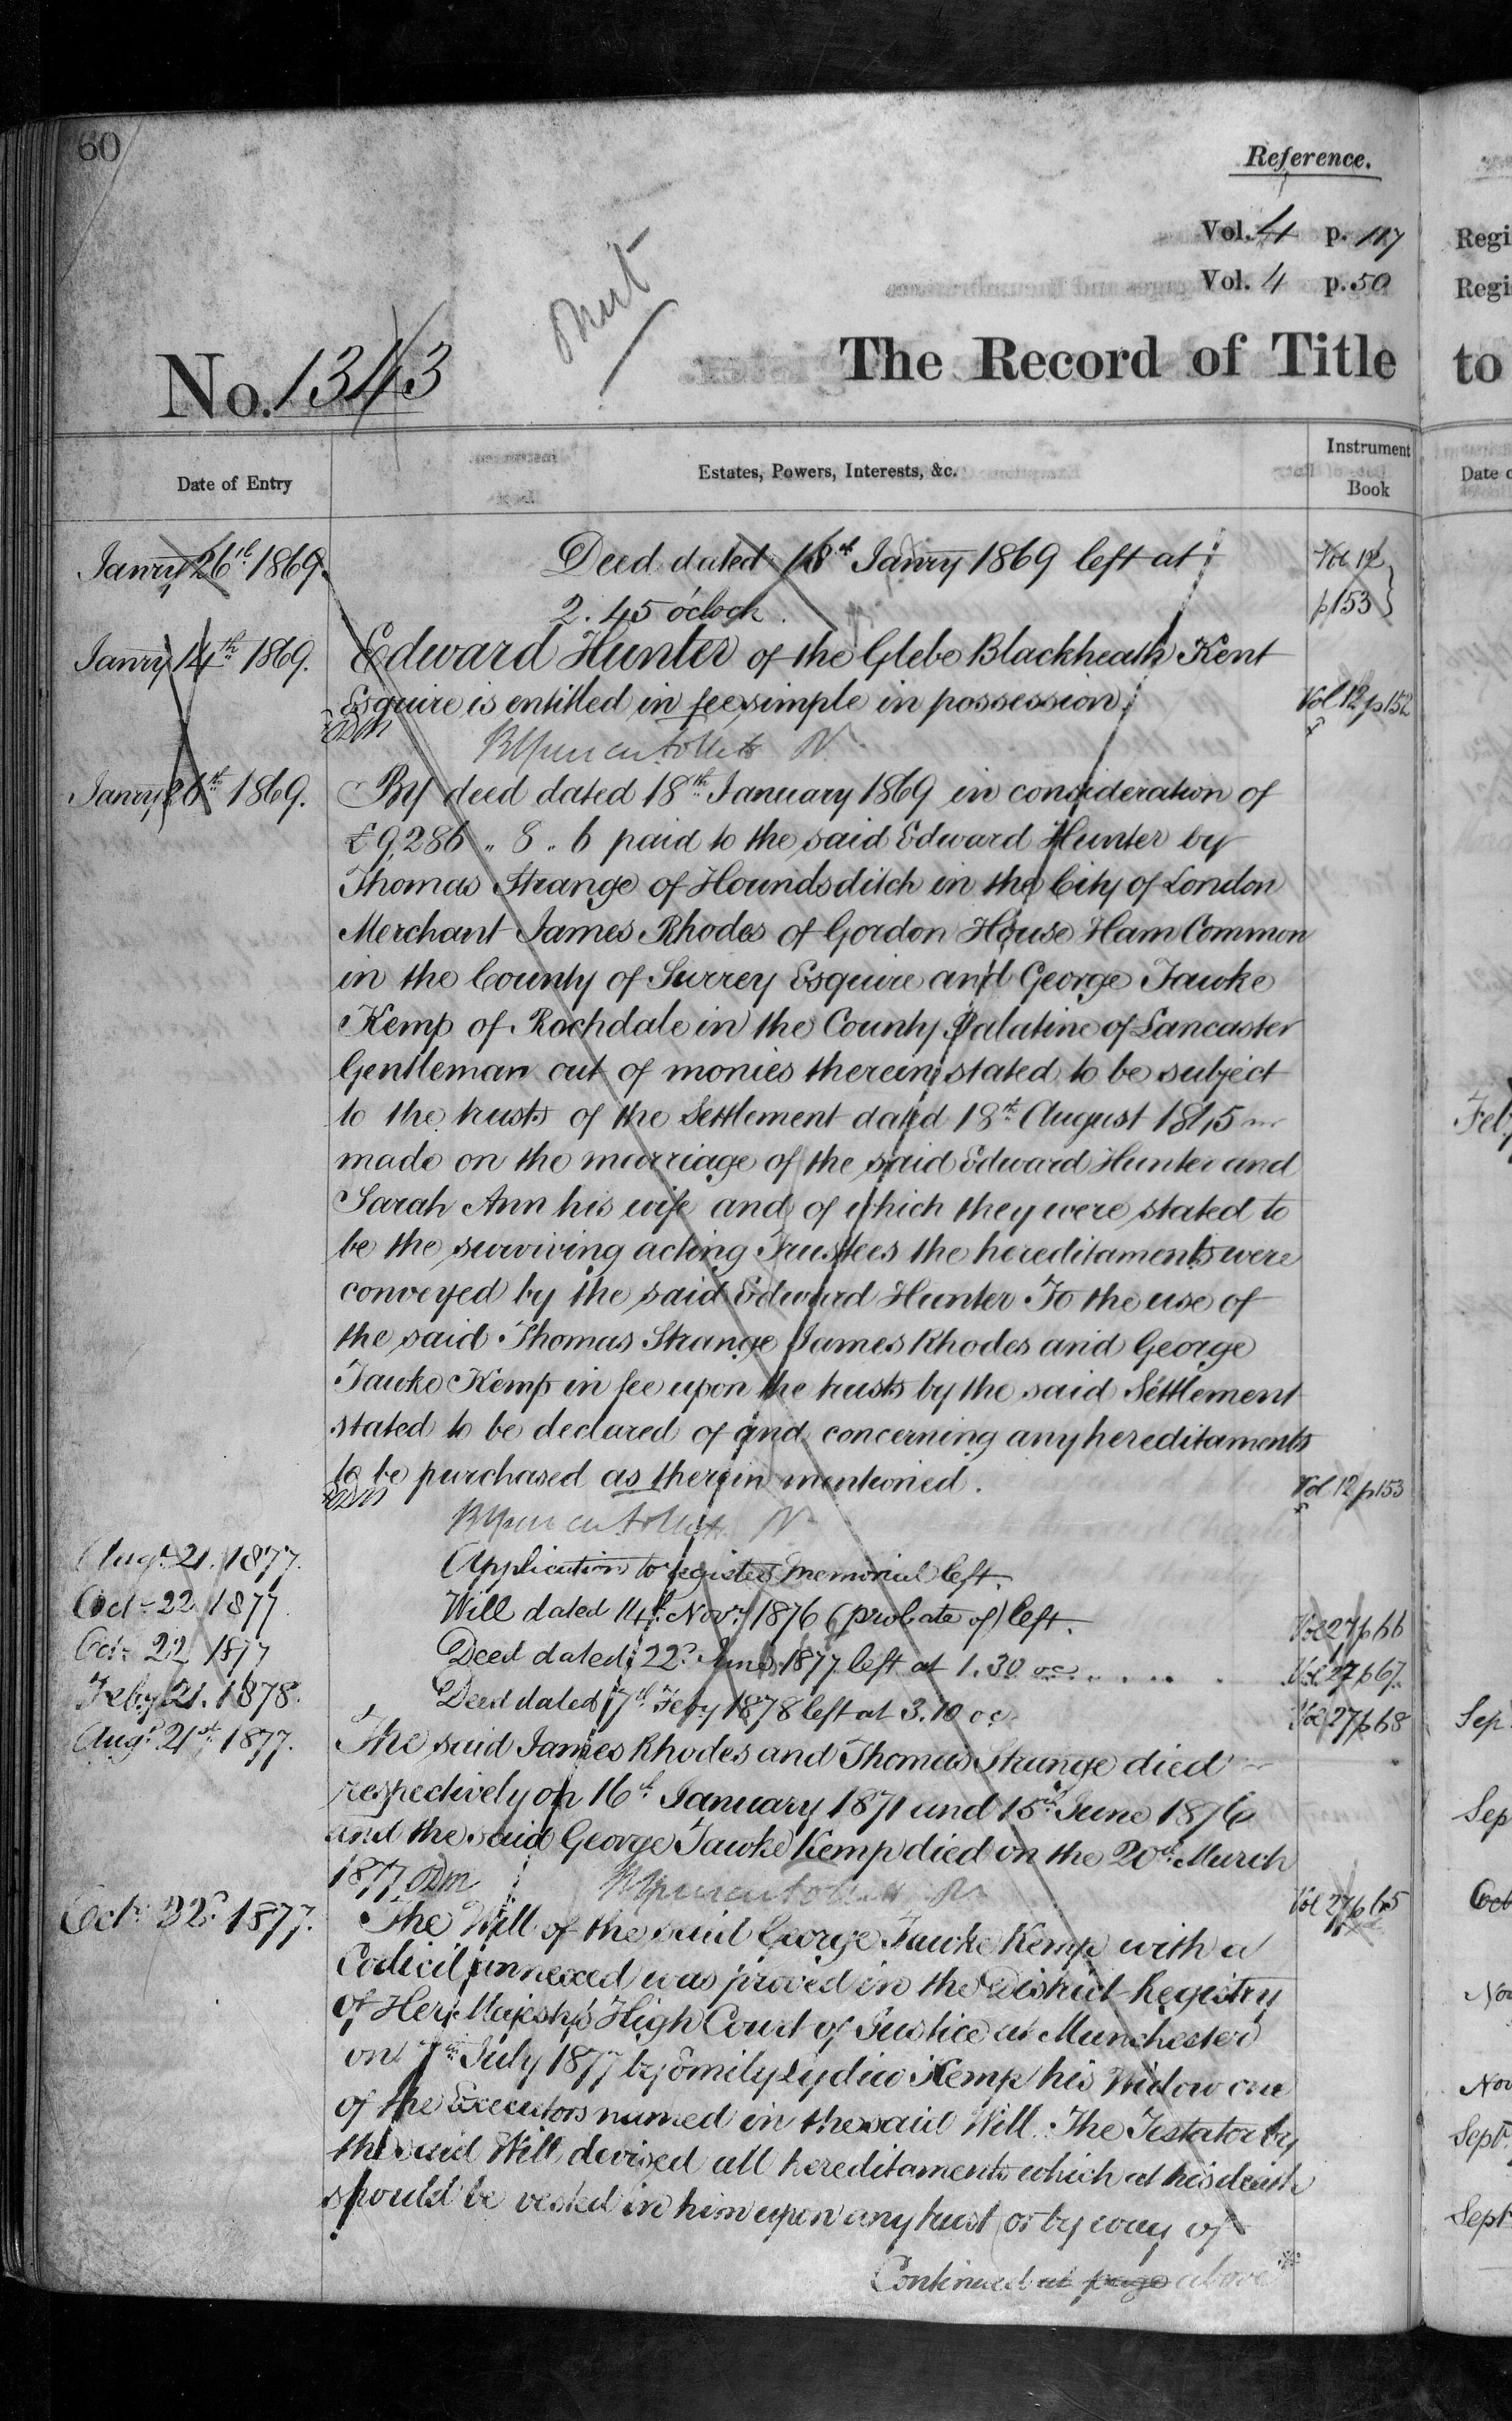 60
Reference.
Vol. 4 p. 117
Vol. 4 p. 50
No. 1343
The Record of Title
Date of Entry
Estates, Powers, Interests, &c.
Instrument Book
Janry 26th 1869.
Deed dated 18th Janry 1869 left at
Vol 12
2.45 o'clock.
p153
Janry 14th 1869.
Edward Hunter of the Glebe Blackheath Kent
Esquire is entitled in fee simple in possession.
Vol 12 p152
Janry 26th 1869.
By deed dated 18th January 1869 in consideration of
£9,286 " 8 " 6 paid to the said Edward Hunter by
Thomas Strange of Houndsditch in the City of London
Merchant James Rhodes of Gordon House Ham Common
in the County of Surrey Esquire and George Tawke
Kemp of Rochdale in the County Palatine of Lancaster
Gentleman out of monies therein stated to be subject
to the trusts of the Settlement dated 18th August 1845
made on the marriage of the said Edward Hunter and
Sarah Ann his wife and of which they were stated to
be the surviving acting Trustees the hereditaments were
conveyed by the said Edward Hunter To the use of
the said Thomas Strange James Rhodes and George
Tawke Kemp in fee upon the trusts by the said Settlement
stated to be declared of and concerning any hereditaments
to be purchased as therein mentioned.
Vol 12 p153
Augt 21. 1877.
Application to register memorial left.
Octr 22. 1877
Will dated 14th Novr 1876 (probate of) left.
Vol 27 p66
Octr 22 1877
Deed dated 22d June 1877 left at 1.30 oc.
Vol 27 p67.
Feby 21. 1878.
Deed dated 7th Feby 1878 left at 3.10 oc
Vol 27 p68
Augt 21st 1877.
The said James Rhodes and Thomas Strange died
respectively on 16th January 1871 and 15th June 1876
and the said George Tawke Kemp died on the 20th March
1877
Vol 27 p65
Octr 22d 1877.
The Will of the said George Tawke Kemp with a
Codicil annexed was proved in the District Registry
of Her Majesty's High Court of Justice at Manchester
on 7th July 1877 by Emily Lydia Kemp his Widow one
of the Executors named in the said Will. The Testator by
the said Will devised all hereditaments which at his death
should be vested in him upon any trust or by way of
Continued at page above *
Regi
Regi
to
Date o
Feb
Sep
Sep
Oct
Nov
Nov
Sept
Sept